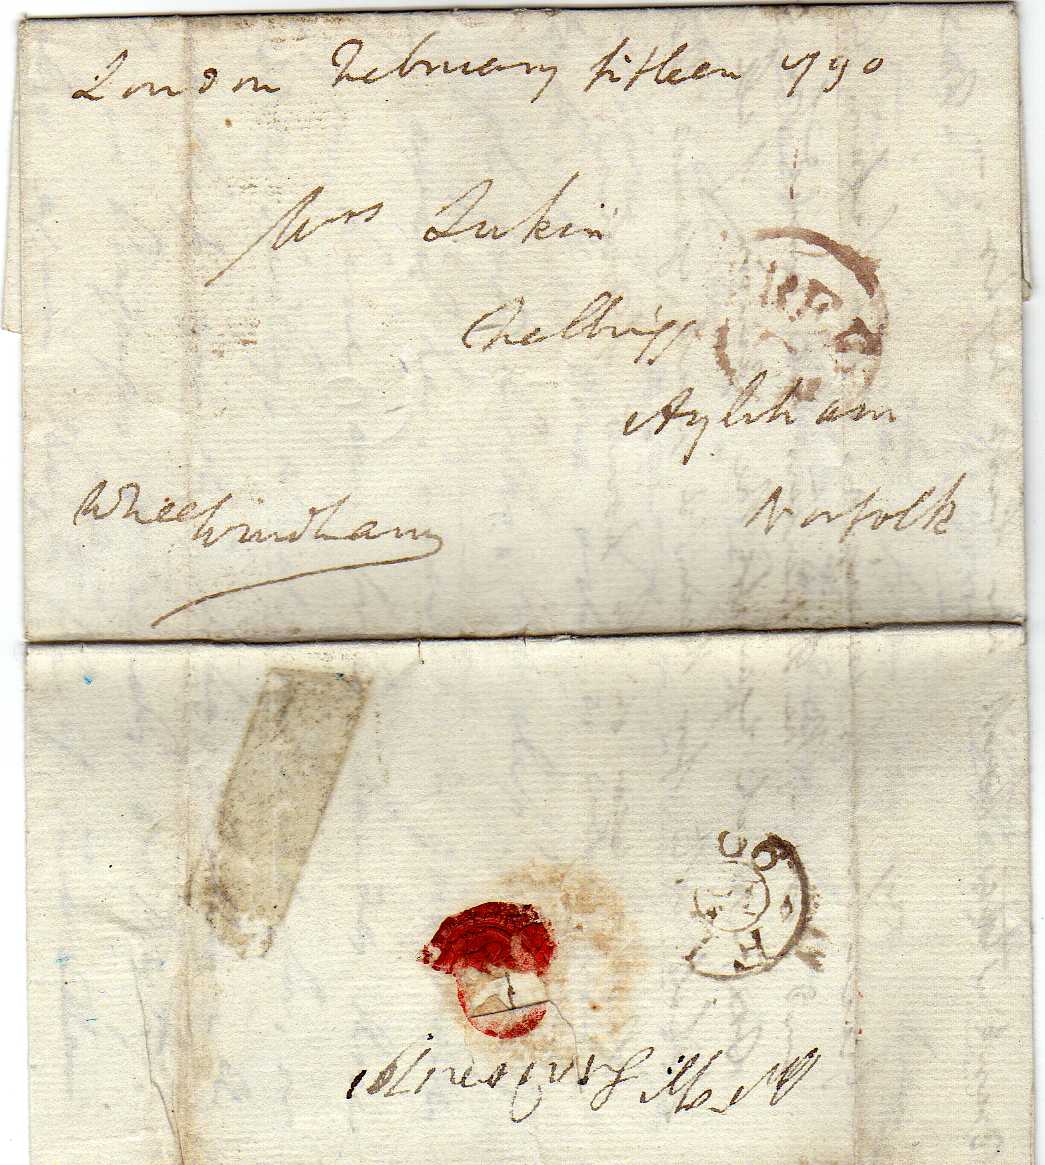 London February fifteen 1790
Mrs Lukin
Felbrigg
Aylsham
Norfolk
Windham
FREE
90